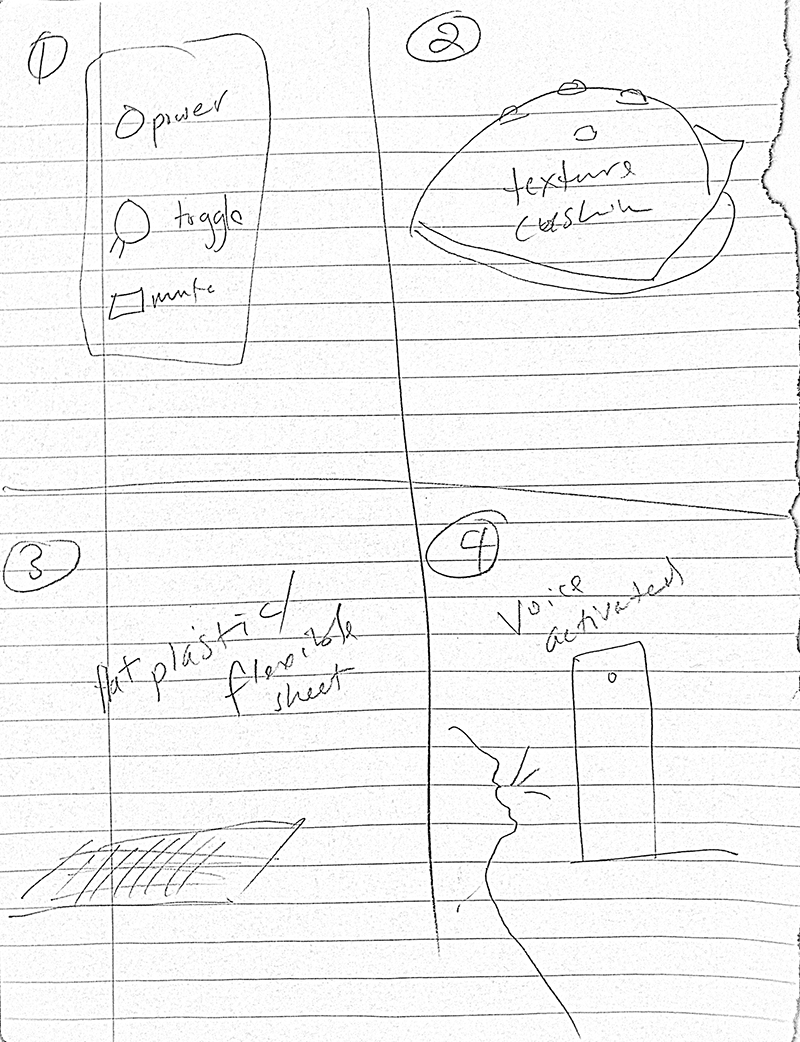 1
power
toggle
mute
2
texture
cushion
3
flat plastic/
flexible
sheet
4
Voice
activated